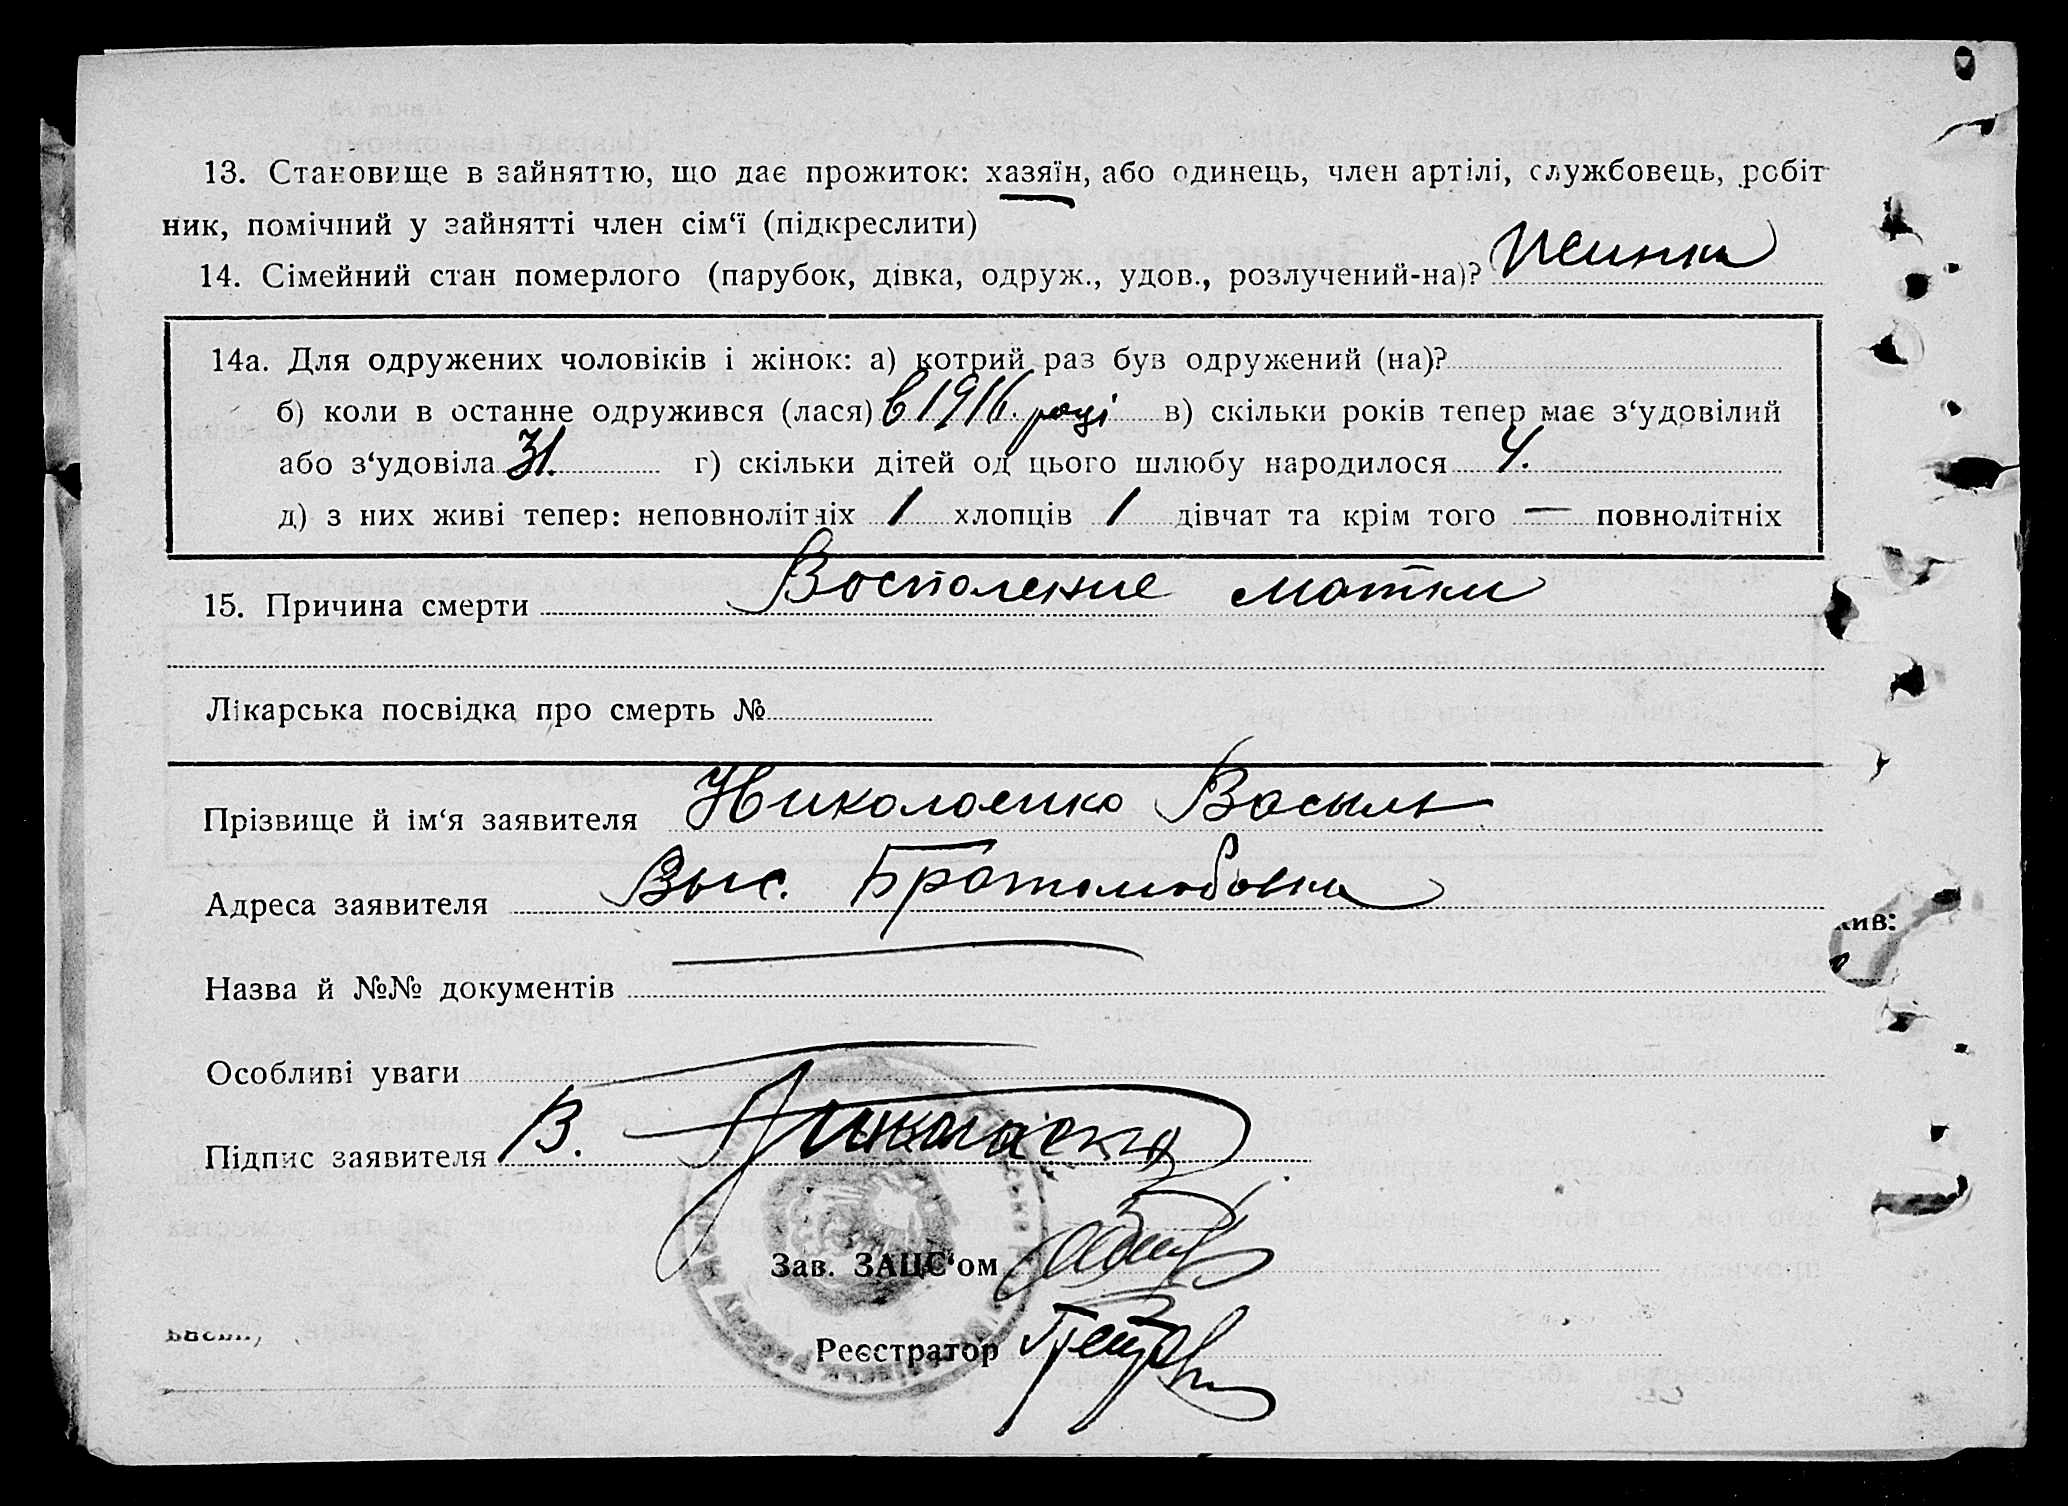 13. Становище в зайняттю, що дає прожиток: хазяїн, або одинець, член артілі, службовець, робіт
ник, помічний у зайнятті член сім‘ї (підкреслити)
14. Сімейний стан померлого (парубок, дівка, одруж., удов., розлучений-на)? Жинка
14а. Для одружених чоловіків і жінок: а) котрий раз був одружений (на)?
б) коли в останне одружився (лася) в 1916. році в) скільки років тепер має з‘удовілий
або з‘удовіла 31. г) скільки дітей од цього шлюбу народилося 4.
д) з них живі тепер: неповнолітніх 1 хлопців 1 дівчат та крім того — повнолітніх
15. Причина смерти Воспаление матки
Лікарська посвідка про смерть №
Прізвище й ім‘я заявителя Николаенко Васыль
Адреса заявителя Выс. Братолюбовка
кив:
Назва й №№ документів
Особливі уваги
Підпис заявителя В. Николаенко
Зав. ЗАЦС‘ом
Реєстратор